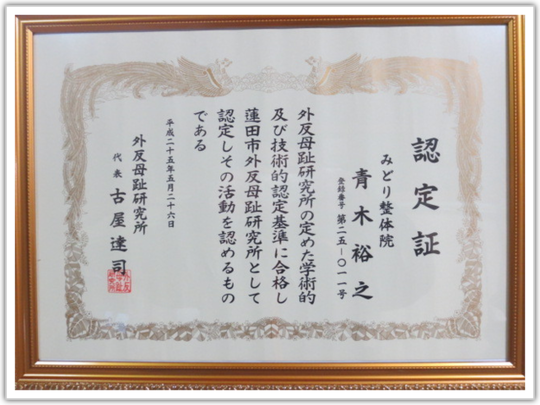 認定証
みどり整体院
青木裕之
登録番号 第二五-〇一一号
外反母趾研究所の定めた学術的
及び技術的認定基準に合格し
蓮田市外反母趾研究所として
認定しその活動を認めるもの
である
平成二十五年五月二十六日
外反母趾研究所
代表 古屋達司